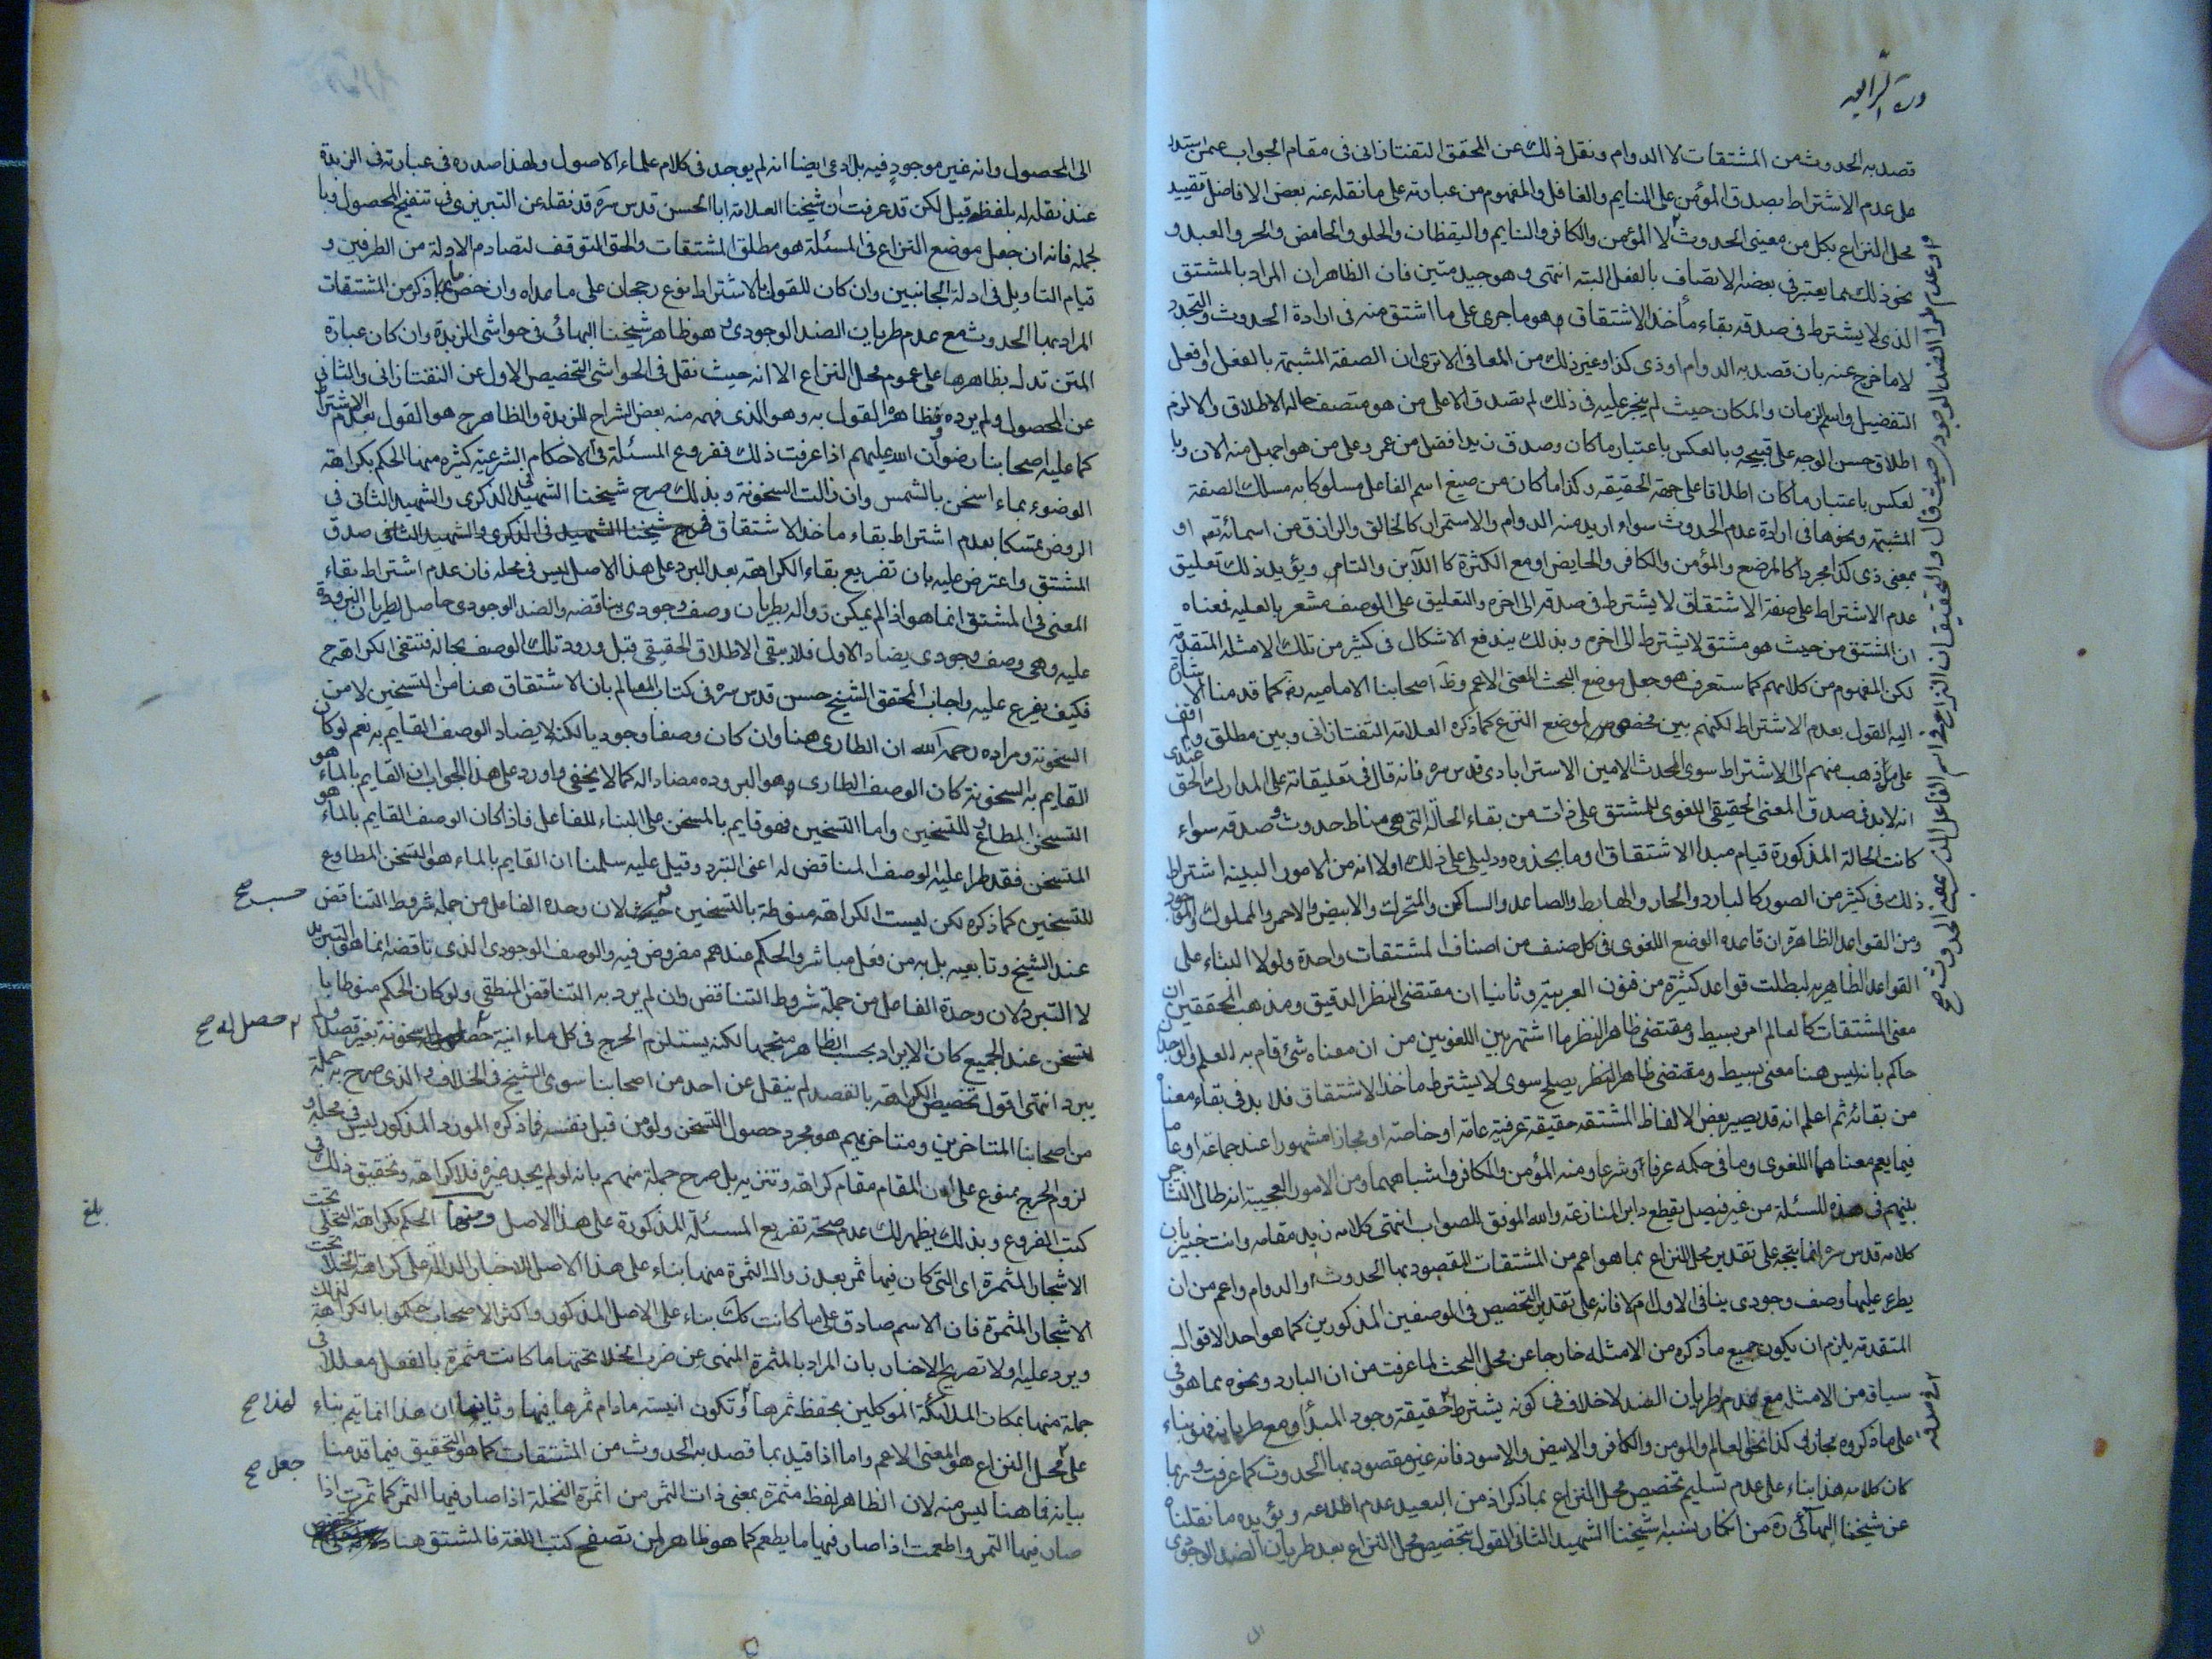 قصد به الحدوث من المشتقات لا الدوام ونقل ذلك عن المحقق التفتازانى فى مقام الجواب عمن استدل
على عدم الاشتراط بصدق المؤمن على النايم والغافل والمفهوم من عبارته على ما نقله عنه بعض الافاضل تقييد
محل النزاع بكل من معنيى الحدوث لا المؤمن والكافر والنايم واليقظان والحلو والحامض والحر والعبد و
نحو ذلك مما يعتبر فى بعضه الاتصاف بالفعل البته انتهى وهو جيد متين فان الظاهر ان المراد بالمشتق
الذى لا يشترط فى صدقه بقاء مأخذ الاشتقاق هو ما جرى على ما اشتق منه فى ارادة الحدوث والتجدد
لا ما خرج عنه بان قصد به الدوام او ذى كذا او غير ذلك من المعانى الا ترى ان الصفة المشبهة بالفعل وافعل
التفضيل واسم الزمان والمكان حيث لم يجر عليه فى ذلك لم تصدق الا على من هو متصف حالة الاطلاق ولا لزم
اطلاق حسن الوجه على قبيحه وبالعكس باعتبار ما كان وصدق زيد افضل من عمرو على من هو اجمل منه الان وبا
لعكس باعتبار ما كان اطلاقا على جهة الحقيقه وكذا ما كان من صيغ اسم الفاعل مسلوكا به مسلك الصفة
المشبهة ونحوها فى ارادة عدم الحدوث سواء اريد منه الدوام والاستمرار كالخالق والرازق من اسمائه تعم او
بمعنى ذى كذا مجردا كالمرضع والمؤمن والكافر والحايض او مع الكثرة كاللابن والتامر ويؤيد ذلك تعليق
عدم الاشتراط على صفة الاشتقاق لا يشترط فى صدقه الى اخره والتعليق على الوصف مشعر بالعليه فمعناه
ان المشتق من حيث هو مشتق لا يشترط الى اخره وبذلك يندفع الاشكال فى كثير من تلك الامثله المتقدمة
لكن المفهوم من كلامهم كما ستعرف هو جعل موضع البحث المعنى الاعم وظ اصحابنا الاماميه رض كما قدمنا الاشارة
اليه القول بعدم الاشتراط لكنهم بين مخصص لموضع النزاع كما ذكره العلامة التفتازانى وبين مطلق ولم اقف
على من ذهب منهم الى الاشتراط سوى المحدث الامين الاسترابادى قدس سره فانه قال فى تعليقاته على المدارك الحق عندى
انه لا بد فى صدق المعنى الحقيقى اللغوى للمشتق على ذات من بقاء الحالة التى هى مناط حدوث صدقه سواء
كانت الحالة المذكورة قيام مبدا الاشتقاق او ما يحذوه ودليلى على ذلك اولا انه من الامور البينة اشتراط
ذلك فى كثير من الصور كالبارد والحار والهابط والصاعد والساكن والمتحرك والابيض والاحمر والمملوك والموجود
ومن القواعد الظاهرة ان قاعدة الوضع اللغوى فى كل صنف من اصناف المشتقات واحدة ولولا البناء على
القواعد الظاهريه لبطلت قواعد كثيرة من فنون العربية وثانيا ان مقتضى النظر الدقيق ومذهب المحققين ان
معنى المشتقات كالعالم امر بسيط ومقتضى ظاهر النظر ما اشتهر بين اللغويين من ان معناه شئ قام به العلم والوجدان
حاكم بانه ليس هنا معنى بسيط ومقتضى ظاهر النظر يصلح سوى لا يشترط ماخذ الاشتقاق فلا بد فى بقاء معناه
من بقائه ثم اعلم انه قد يصير بعض الالفاظ المشتقه حقيقة عرفية عامة او خاصة او مجازا مشهورا عند جماعة او عا
فيما يعم معناهما اللغوى وما فى حكمه عرفا او شرعا ومنه المؤمن والكافر واشباههما ومن الامور العجيبة انه طال التشاجر
بينهم فى هذه المسئلة من غير فيصل يقطع دابر المنازعة والله الموفق للصواب انتهى كلامه زيد مقامه وانت خبير بان
كلامه قدس سره انما يتجه على تقدير محل النزاع بما هو اعم من المشتقات المقصود بها الحدوث او الدوام واعم من ان
يطرء عليها وصف وجودى ينافى الاول ام لا فانه على تقدير التخصيص فى الموصفين المذكورين كما هو احد الاقوال
المتقدمة يلزم ان يكون جميع ما ذكره من الامثله خارجا عن محل البحث لما عرفت من ان البارد ونحوه مما هو فى
سياقه من الامثلة مع عدم طريان الضد لا خلاف فى كونه يشترط حقيقة وجود المبدا ومع طريانه فهو بناء
على ما ذكروه مجاز وكذا نحو العالم والمومن والكافر والابيض والاسود فانه غير مقصود بها الحدوث كما عرفت وربما
كان كلامه هذا بناء على عدم تسليم تخصيص محل النزاع بما ذكر اذ من البعيد عدم اطلاعه ويؤيده ما نقلناه
عن شيخنا البهائى ره من انكار نسبة شيخنا الشهيد الثانى القول بتخصيص محل النزاع بعد طريان الضد الوجودى
الى المحصول وانه غير موجود فيه بل ادعى ايضا انه لم يوجد فى كلام علماء الاصول ولهذا صدره فى عبارته فى الزبدة
عند نقله له بلفظ قيل لكن قد عرفت ان شيخنا العلامة ابا الحسن قدس سره قد نقله عن التبريزى فى تنقيح المحصول وبا
لجمله فانه ان جعل موضع النزاع فى المسئلة هو مطلق المشتقات والحق التوقف لتصادم الادلة من الطرفين و
قيام التاويل فى ادلة الجانبين وان كان للقول بالاشتراط نوع رجحان على ما عداه وان خص بما ذكر من المشتقات
المراد بها الحدوث مع عدم طريان الضد الوجودى وهو ظاهر شيخنا البهائى فى حواشى الزبدة وان كان عبارة
المتن تدل بظاهرها على عموم محل النزاع الا انه حيث نقل فى الحواشى التخصيص الاول عن التفتازانى والثانى
عن المحصول ولم يرده فظاهره القول به وهو الذى فهمه منه بعض الشراح للزبدة والظاهر ح هو القول بعدم الاشتراط
كما عليه اصحابنا رضوان الله عليهم اذا عرفت ذلك ففروع المسئلة فى الاحكام الشرعية كثيره منها الحكم بكراهة
الوضوء بماء اسخن بالشمس وان زالت السخونة وبذلك صرح شيخنا الشهيد فى الذكرى والشهيد الثانى فى
الروض متمسكا بعدم اشتراط بقاء ماخذ الاشتقاق فى صدق
المشتق واعترض عليه بان تفريع بقاء الكراهة بعد البرد على هذا الاصل ليس فى محله فان عدم اشتراط بقاء
المعنى فى المشتق انما هو اذا لم يمكن زواله بطريان وصف وجودى يناقضه والضد الوجودى حاصل لطريان البرودة
عليه وهى وصف وجودى يضاد الاول فلا يبقى الاطلاق الحقيقى قبل ورود تلك الوصف بحاله فتنتفى الكراهة ح
فكيف يفرع عليه واجاب المحقق الشيخ حسن قدس سره فى كتاب المعالم بان الاشتقاق هنا من التسخين لا من
السخونة ومراده رحمه الله ان الطارى هنا وان كان وصفا وجوديا لكنه لا يضاد الوصف القايم به نعم لو كان
القايم به السخونة كان الوصف الطارى وهو البروده مضادا له كما لا يخفى واورد على هذا الجواب ان القايم بالماء هو
التسخن المطاوع للتسخين واما التسخين فهو قايم بالمسخن على البناء للفاعل فاذا كان الوصف القايم بالماء هو
التسخن فقد طرا عليه الوصف المناقض له اعنى التبرد وقيل عليه سلمنا ان القايم بالماء هو التسخن المطاوع
للتسخين كما ذكره لكن ليست الكراهة منوطة بالتسخين حيث لان وحدة الفاعل من جملة شروط التناقض
عند الشيخ وتابعيه بل به من فعل مباشر والحكم عندهم مفروض فيه والوصف الوجودى الذى ناقضه انما هو التبريد
لا التبرد لان وحدة الفاعل من جملة شروط التناقض وان لم يرد به التناقض المنطقى ولو كان الحكم منوطا با
لتسخن عند الجميع كان الايراد بحسب الظاهر متجها لكنه يستلزم الحرج فى كل ماء انية حصل له سخونة بغير قصد ولم
يبرد انتهى اقول تخصيص الكراهة بالقصد لم ينقل عن احد من اصحابنا سوى الشيخ فى الخلاف والذى صرح به جملة
من اصحابنا المتاخرين ومتاخريهم هو مجرد حصول التسخن ولو من قبل نفسه فما ذكره المورد المذكور ليس فى محله و
لزوم الحرج ممنوع على ان المقام مقام كراهة وتنزيه بل صرح جملة منهم بانه لو لم يجد غيره فلا كراهة وتحقيق ذلك فى
كتب الفروع وبذلك يظهر لك عدم صحة تفريع المسئلة المذكورة على هذا الاصل ومنها الحكم بكراهة التخلى تحت
الاشجار المثمرة اى التى كان فيها ثمر بعد زوال الثمرة منها بناء على هذا الاصل للاخبار الدالة على كراهة التخلى تحت
الاشجار المثمرة فان الاسم صادق على ما كانت كك بناء على الاصل المذكور واكثر الاصحاب حكموا بالكراهة لذلك
ويرد عليه اولا تصريح الاخبار بان المراد بالمثمرة المنهى عن ضرب الخلا تحتها ما كانت مثمرة بالفعل معللا فى
جملة منها بمكان الملائكة الموكلين بحفظ ثمرها وتكون انيسة ما دام ثمرها فيها وثانيا ان هذا انما يتم بناء
على محل النزاع هو المعنى الاعم واما اذا قيد بما قصد به الحدوث من المشتقات كما هو التحقيق فيما قدمنا
بيانه فما هنا ليس منه لان الظاهر لفظ مثمرة بمعنى ذات الثمر من اثمرة النخلة اذا صار فيها الثمر كما تمرت اذا
صار فيها التمر واطعمت اذا صار فيها ما يطعم كما هو ظاهر لمن تصفح كتب اللغة فالمشتق هنا
لهذا صح
جعل صح
حصل له صح
بلغ